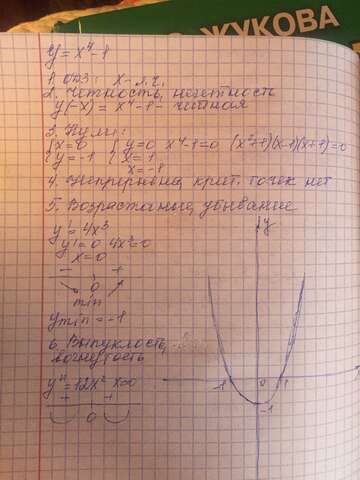 ЖУКОВА
y = x⁴-1
1. ОДЗ: x - л.ч.
2. Четность, нечетность
y(-x) = x⁴-1 - четная
3. Нули:
{x=0 {y=0 x⁴-1=0 (x²+1)(x-1)(x+1)=0
{y=-1 {x=1
x=-1
4. Непрерывна, крит. точек нет
5. Возрастание, убывание
y
y' = 4x³
y'=0 4x³=0
x=0
- +
0
min
y min = -1
6. Выпуклость,
вогнутость
-1 0 1
y''=12x² x=0
-1
+ +
0